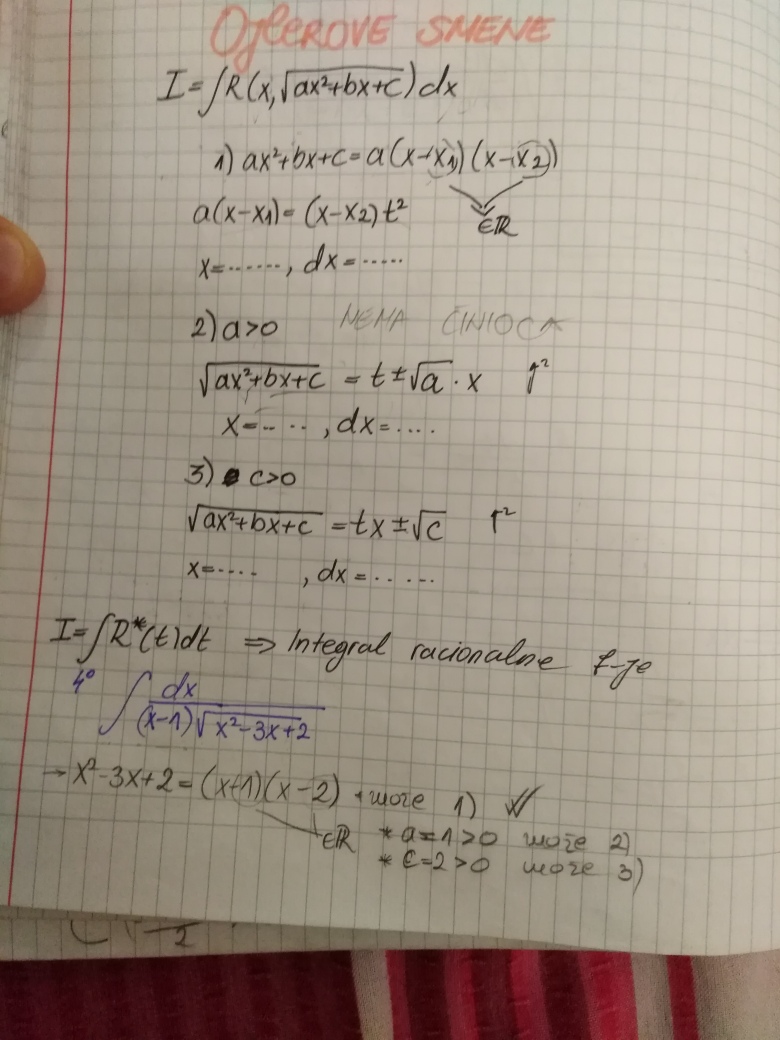 OJLEROVE SMENE
I=∫R(x,√ax²+bx+c)dx
1) ax²+bx+c=a(x-x₁)(x-x₂)
a(x-x₁)=(x-x₂)t²
∈ℝ
x=......, dx=.....
2) a>0 NEMA ČINIOCA
√ax²+bx+c = t±√a·x ↑²
x=....,dx=....
3) c>0
√ax²+bx+c =tx±√c ↑²
x=.... ,dx=......
I=∫R*(t)dt ⇒ Integral racionalne f-je
4° ∫dx/(x-1)√x²-3x+2
→x²-3x+2=(x-1)(x-2) • može 1) ✓
∈ℝ * a=1>0 može 2)
* c=2>0 može 3)
2